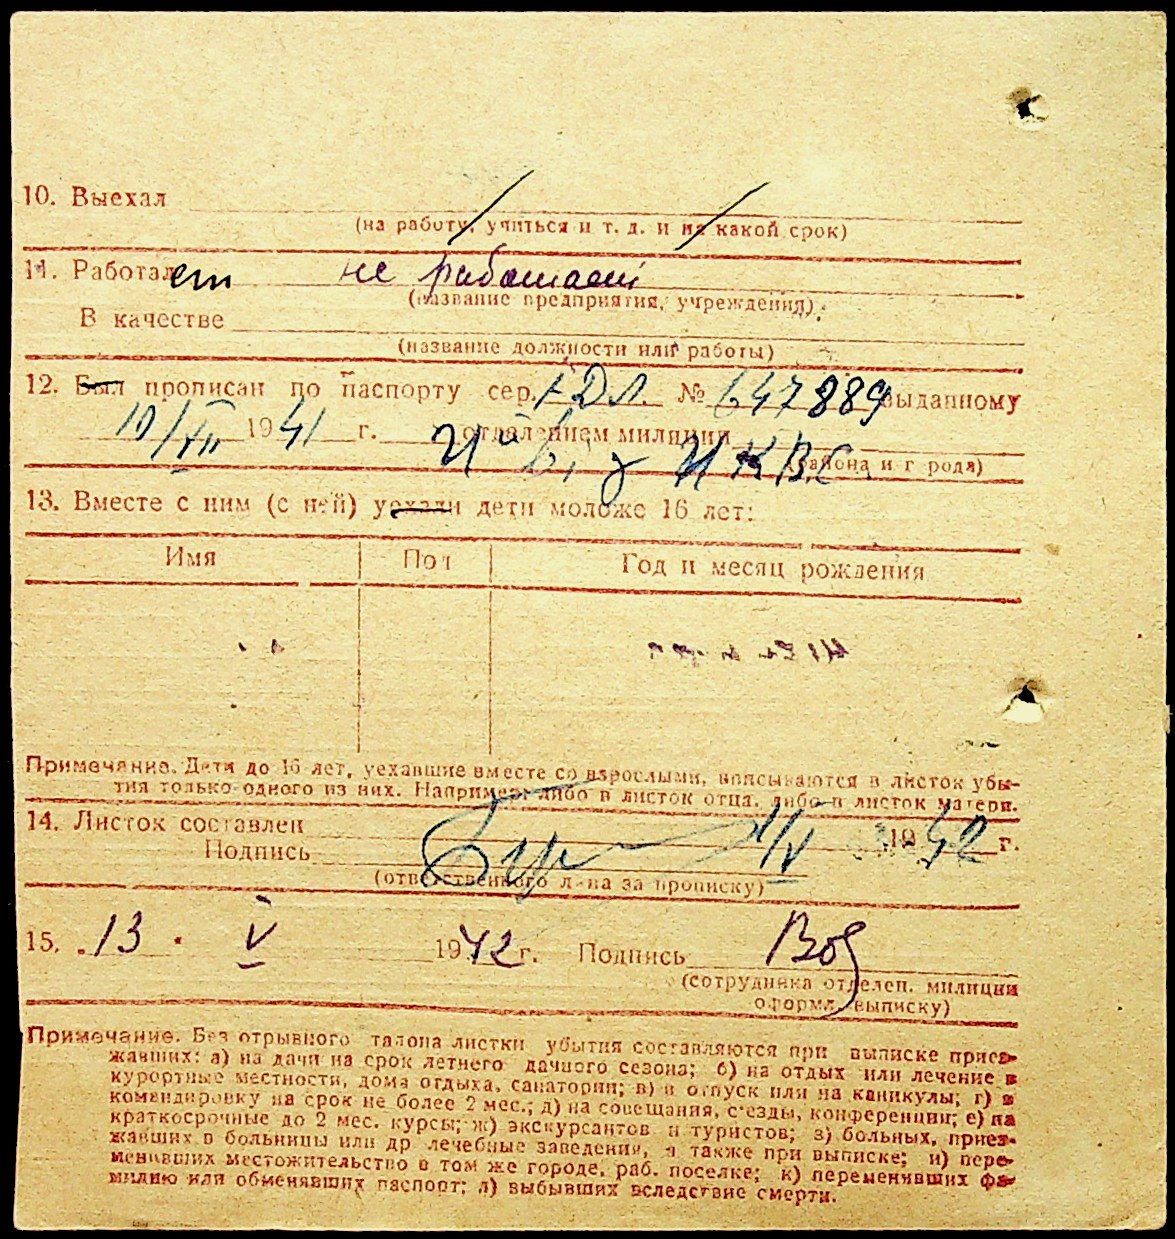 10. Выехал
(на работу, учиться и т. д. и на какой срок)
11. Работает не работает
(название предприятия, учреждения)
В качестве
(название должности или работы)
12. Был прописан по паспорту сер. № 647889 выданному
10/VII 1941 г. отделением милиции
НКВД
(района и города)
13. Вместе с ним (с ней) уехали дети моложе 16 лет:
Имя Пол Год и месяц рождения
Примечание. Дети до 16 лет, уехавшие вместе со взрослыми, вписываются в листок убы-
тия только одного из них. Например: либо в листок отца, либо в листок матери.
14. Листок составлен 1942 г.
Подпись
(ответственного лица за прописку)
15. 13. V 1942 г. Подпись
(сотрудника отделен. милиции
оформл. выписку)
Примечание. Без отрывного талона листки убытия составляются при выписке приез-
жавших: а) на дачи на срок летнего дачного сезона; б) на отдых или лечение в
курортные местности, дома отдыха, санатории; в) в отпуск или на каникулы; г) в
командировку на срок не более 2 мес.; д) на совещания, с'езды, конференции; е) на
краткосрочные до 2 мес. курсы; ж) экскурсантов и туристов; з) больных, приез-
жавших в больницы или др лечебные заведения, а также при выписке; и) пере-
менивших местожительство в том же городе, раб. поселке; к) переменивших фа-
милию или обменявших паспорт; л) выбывших вследствие смерти.